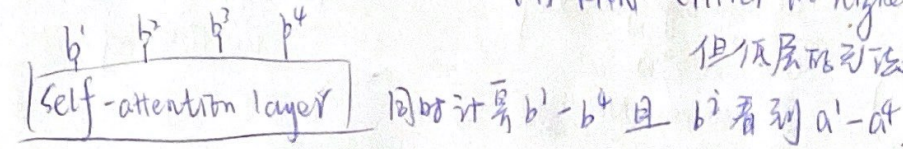 但低层的无法
b¹ b² b³ b⁴
self-attention layer 同时计算 b¹-b⁴ 且 bⁱ 看到 a¹-a⁴